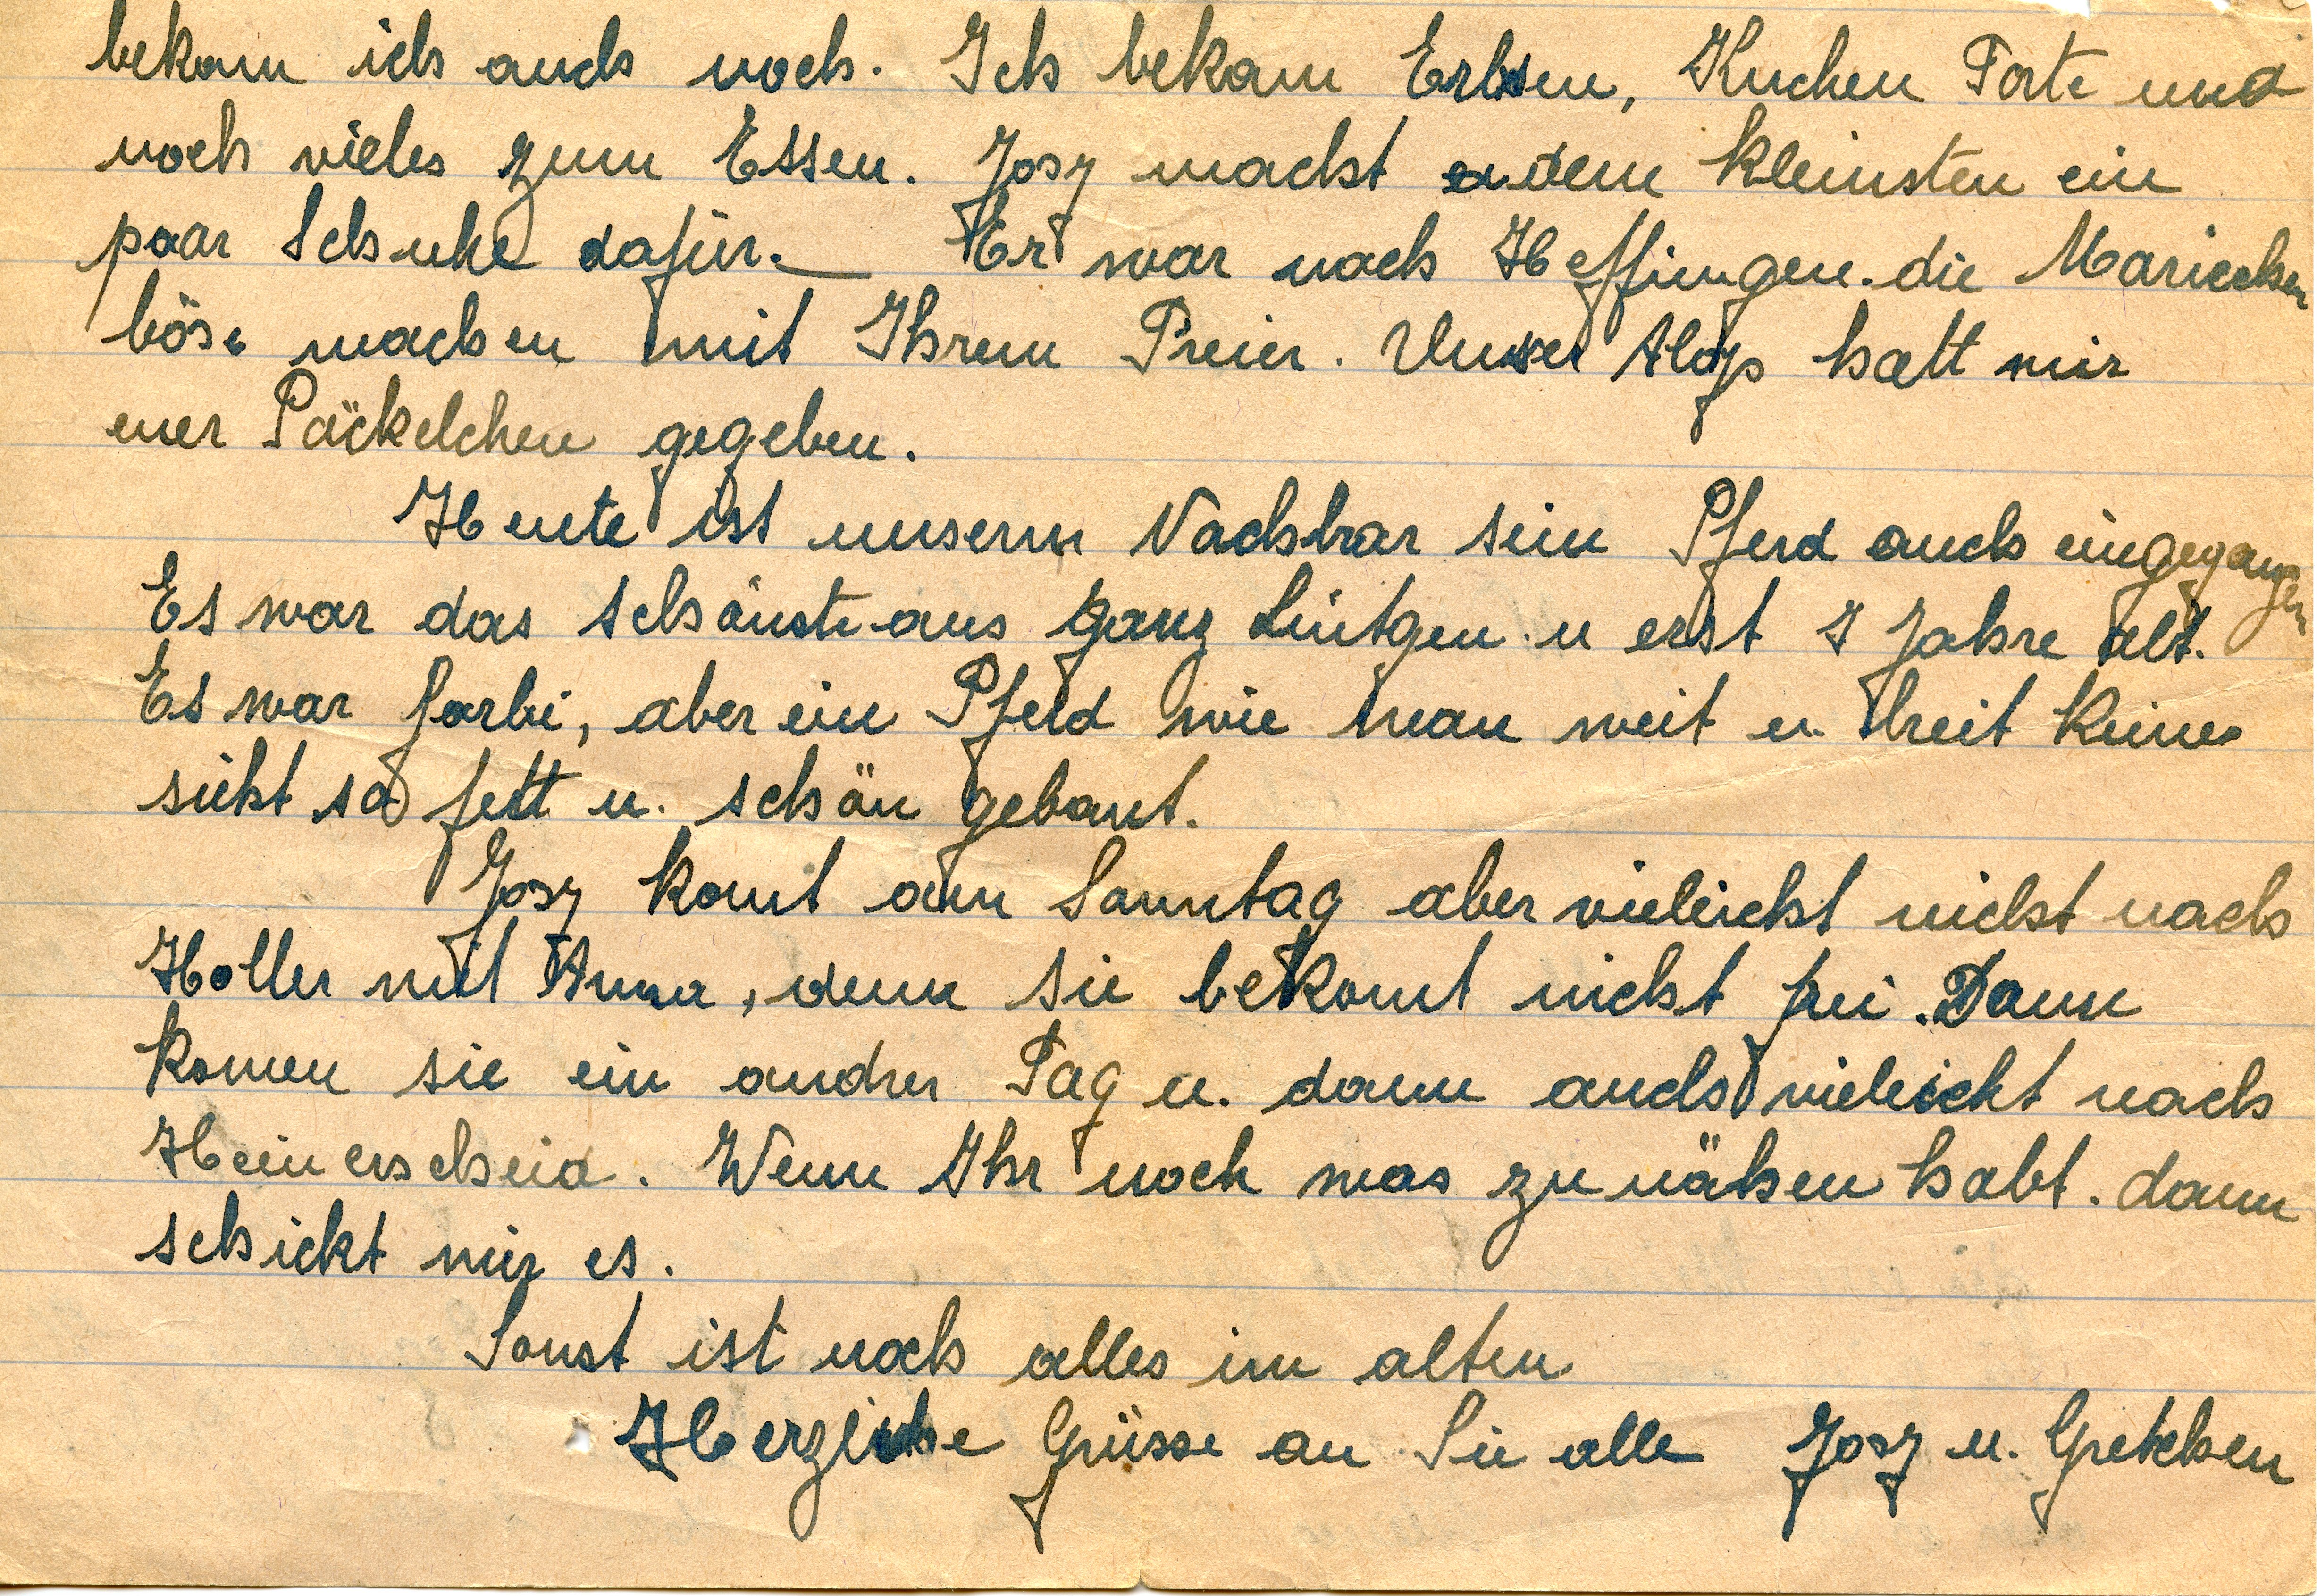 bekam ich auch noch. Ich bekam Erbsen, Kuchen Torte und
noch vieles zum Essen. Josy macht dem kleinsten ein
paar Schuhe dafür. Er war nach Heffingen. die Mariechen
böse machen mit Ihrem Preier. Unser Aloys hatt mir
euer Päckelchen gegeben.
Heute ist unserm Nachbar sein Pferd auch eingegangen
Es war das schönste aus ganz Lintgen u erst 7 Jahre alt.
Es war farbi, aber ein Pferd wie man weit u. breit keines
sieht so fett u. schön gebaut.
Josy komt am Sonntag aber vieleicht nicht nach
Holler mit Anna, denn sie bekomt nicht frei. Dann
komen sie ein andrer Tag u. dann auch vieleicht nach
Heinerscheid. Wenn Ihr noch was zu nähen habt. dann
schickt mir es.
Sonst ist noch alles im alten
Herzliche Grüsse an Sie alle Josy u. Gretchen